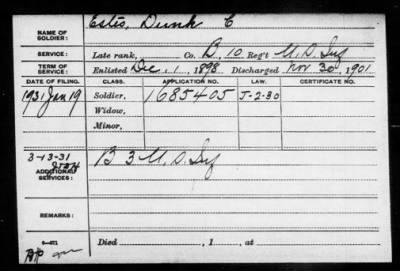 NAME OF SOLDIER: Estes, Dunk C
SERVICE: Late rank, Co. B, 10 Reg't U.S. Inf
TERM OF SERVICE: Enlisted Dec. 1, 1898 Discharged Nov 30, 1901
DATE OF FILING. CLASS. APPLICATION NO. LAW. CERTIFICATE NO.
1931 Jan 19 Soldier, 1685405 J-2-30
Widow,
Minor,
3-13-31 B 3 U.S. Inf
ADDITIONAL SERVICES:
REMARKS:
Died , 1 , at